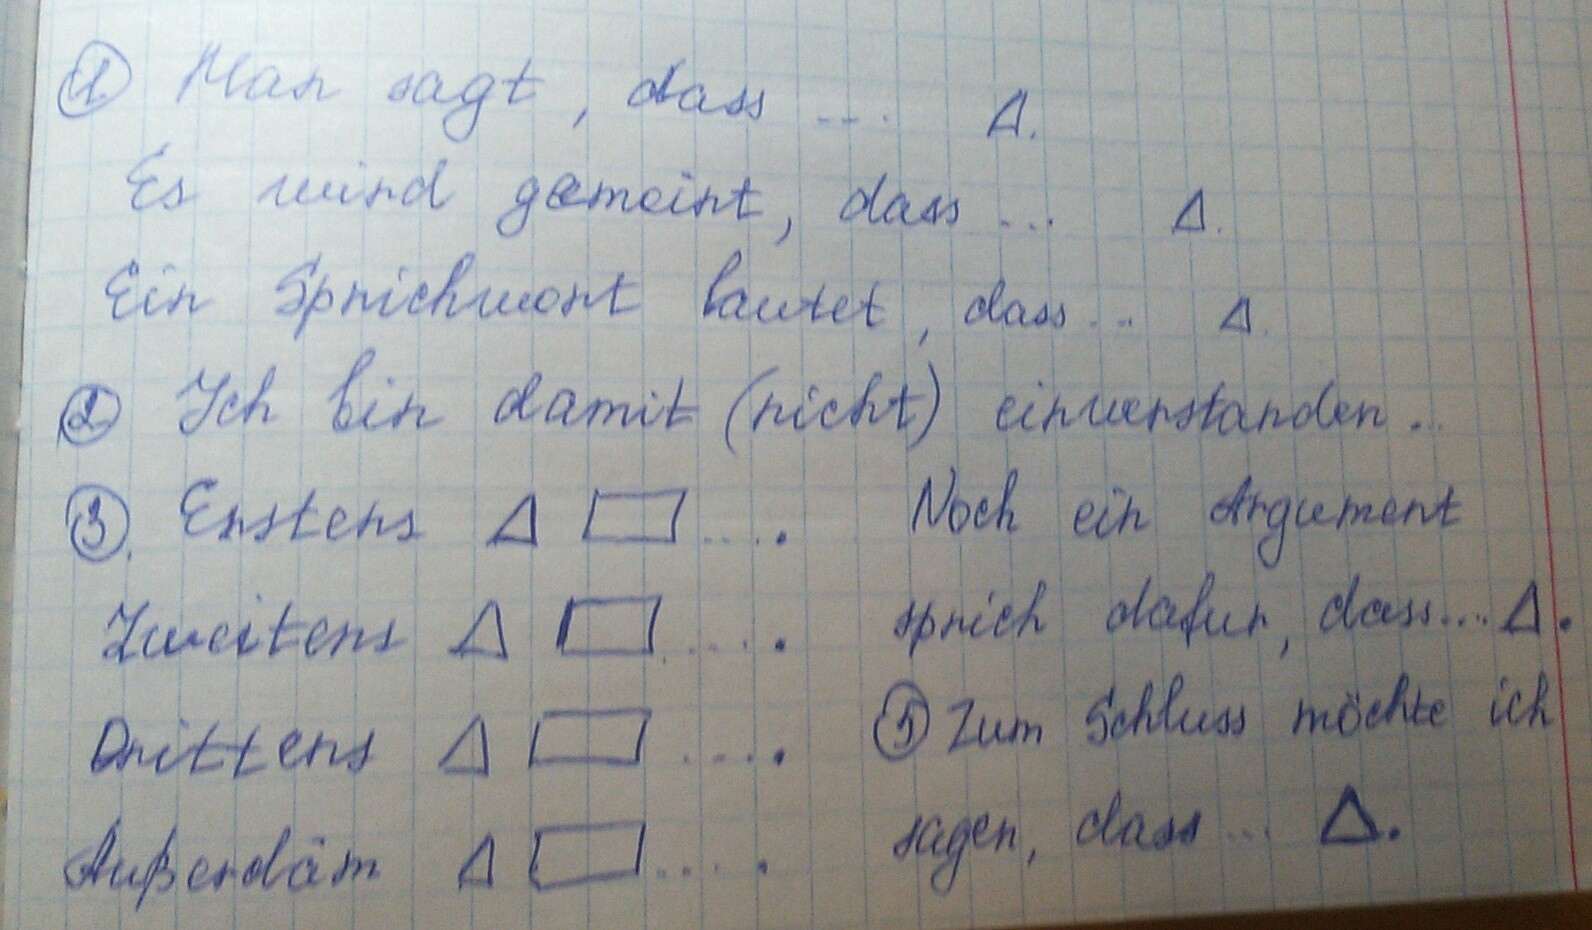 ① Man sagt, dass ... Δ.
Es wird gemeint, dass ... Δ.
Ein Sprichwort lautet, dass ... Δ.
② Ich bin damit (nicht) einverstanden...
③. Erstens Δ ▭ .....
Zweitens Δ ▭ .....
Drittens Δ ▭ .....
Außerdäm Δ ▭ .....
Noch ein Argument
sprich dafur, dass... Δ.
⑤ Zum Schluss möchte ich
sagen, dass ... Δ.